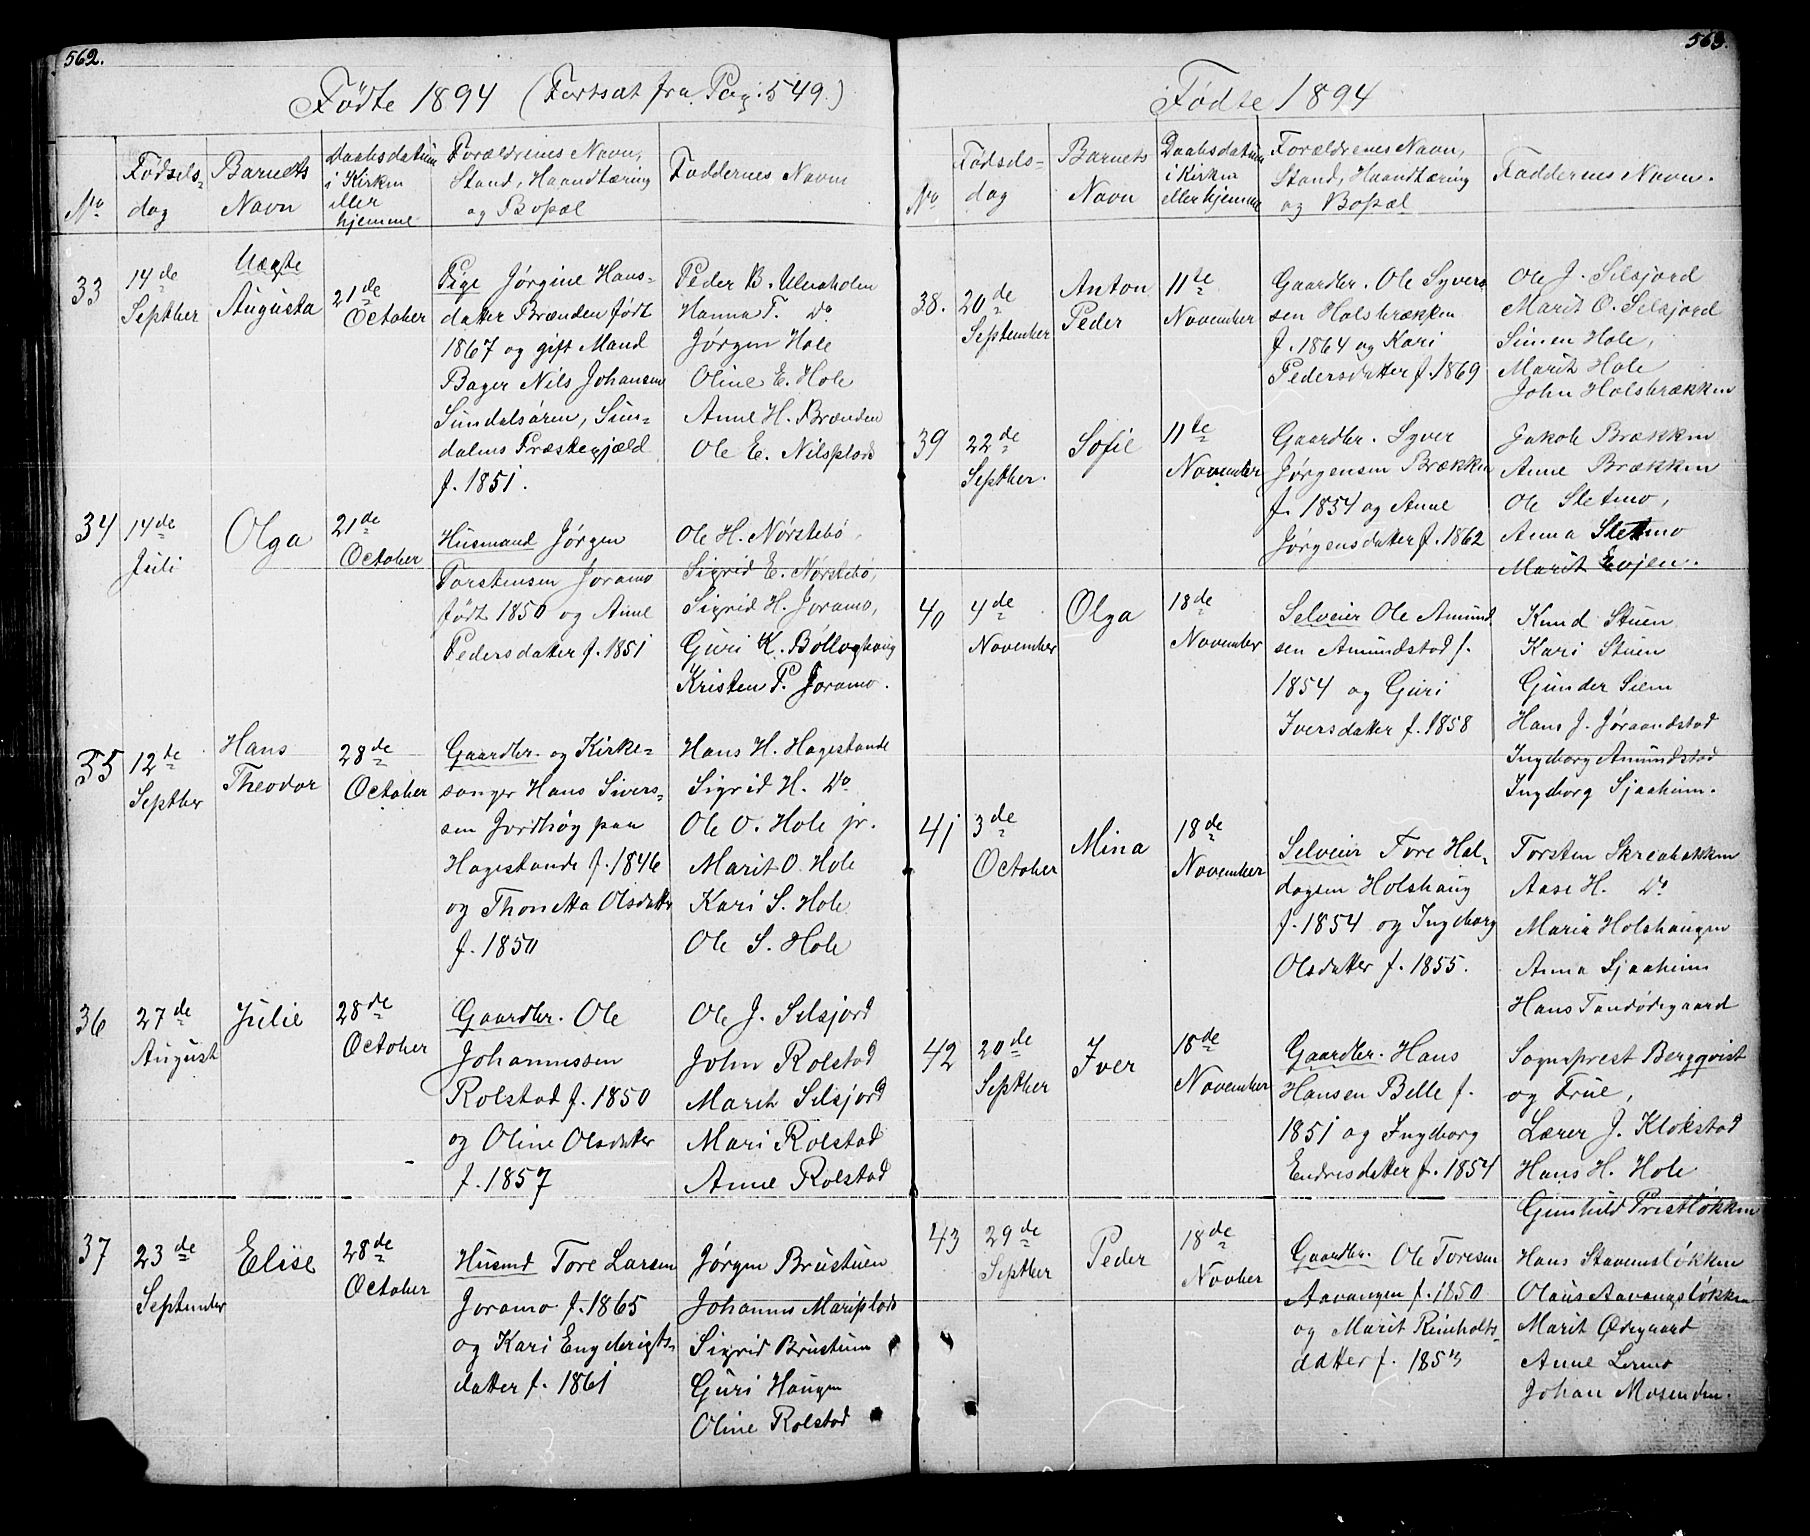 562.
Fødte 1894 (Fortsat fra Pag. 549.)
No
Fødsels-
dag
Barnets
Navn
Daabsdatum
i Kirken
eller
hjemme
Forældrenes Navn,
Stand, Haandtæring
og Bopæl
Faddernes Navn
33
14de
Septber
Uægte
Augusta
21de
October
Pige Jørgine Hans-
datter Brænden født
1867 og gift Mand
Bager Nils Johansen
Sundalsøren, Sun-
dalens Præstegjæld
f. 1851.
Peder B. Ulenholen
Hanna T. Do
Jørgen Hole
Oline E. Hole
Anne H. Brænden
Ole E. Nilsplads
34
14de
Juli
Olga
21de
October
Husmand Jørgen
Torstensen Joramo
født 1850 og Anne
Pedersdatter f. 1851
Ole H. Nørstebø,
Sigrid E. Nørstebø,
Sigrid H. Joramo,
Guri K. Bølloghaug
Kristen P. Joramo.
35
12te
Septber
Hans
Theodor
28de
October
Gaardbr. og Kirke-
sanger Hans Sivers-
sen Jordhøy paa
Hagestande f. 1846
og Thonetta Olsdatter
f. 1850
Hans H. Hagestande
Sigrid H. Do
Ole O. Hole jr.
Marit O. Hole
Kari S. Hole
Ole S. Hole
36
27de
August
Julie
28de
October
Gaardbr. Ole
Johannessen
Rolstad f. 1850
og Oline Olsdatter
f. 1857
Ole J. Selsjord
John Rolstad
Marit Selsjord
Mari Rolstad
Anne Rolstad
37
23de
September
Elise
28de
October
Husmd Tore Larsen
Joramo f. 1865
og Kari Engebrigts-
datter f. 1861
Jørgen Brustuen
Johannes Mariplads
Sigrid Brustuen
Guri Haugen
Oline Rolstad
563.
Fødte 1894
No
Fødsels-
dag
Barnets
Navn
Daabsdatum
i Kirken
eller hjemme
Forældrenes Navn,
Stand, Haandtæring
og Bopæl
Faddernes Navn.
38.
20de
September
Anton
Peder
11te
November
Gaardbr. Ole Syver-
sen Holsbrækken
f. 1864 og Kari
Pedersdatter f. 1869
Ole J. Selsjord
Marit O. Selsjord
Simen Hole,
Marit Hole
John Holsbrækken
39
22de
Septber.
Sofie
11te
November
Gaardbr. Syver
Jørgensen Brækken
f. 1854 og Anne
Jørgensdatter f. 1862
Jakob Brækken
Anne Brækken
Ole Stetmo,
Anna Stetmo
Marit Evjen.
40
4de
November
Olga
18de
November
Selveier Ole Amund
sen Amundstad f.
1854 og Guri
Iversdatter f. 1858
Knud Stuen
Kari Stuen
Gunder Siem
Hans J. Jøraandstad
Ingeborg Amundstad
Ingeborg Sjaaheim.
41
3de
October
Mina
18de
November
Selveier Tore Hal-
dogsen Holshaug
f. 1854 og Ingeborg
Olsdatter f. 1855.
Torsten Skreabakken
Aase H. Do
Maria Holshaugen
Anna Sjaaheim
Hans Tandødegaard
42
20de
Septber
Iver
18de
November
Gaardbr. Hans
Hansen Belle f.
1851 og Ingeborg
Endresdatter f. 1854
Sogneprest Bergqvist
og Frue,
Lærer J. Klokstad
Hans H. Hole
Gunhild Prestløkken
43
29de
Septber
Peder
18de
Novber
Gaardbr. Ole Toresen
Aavangen f. 1850
og Marit Reinholts-
datter f. 1853
Hans Stavensløkken
Olaus Aavangsløkken
Marit Ødegaard
Anne Lermo
Johan Mosenden.